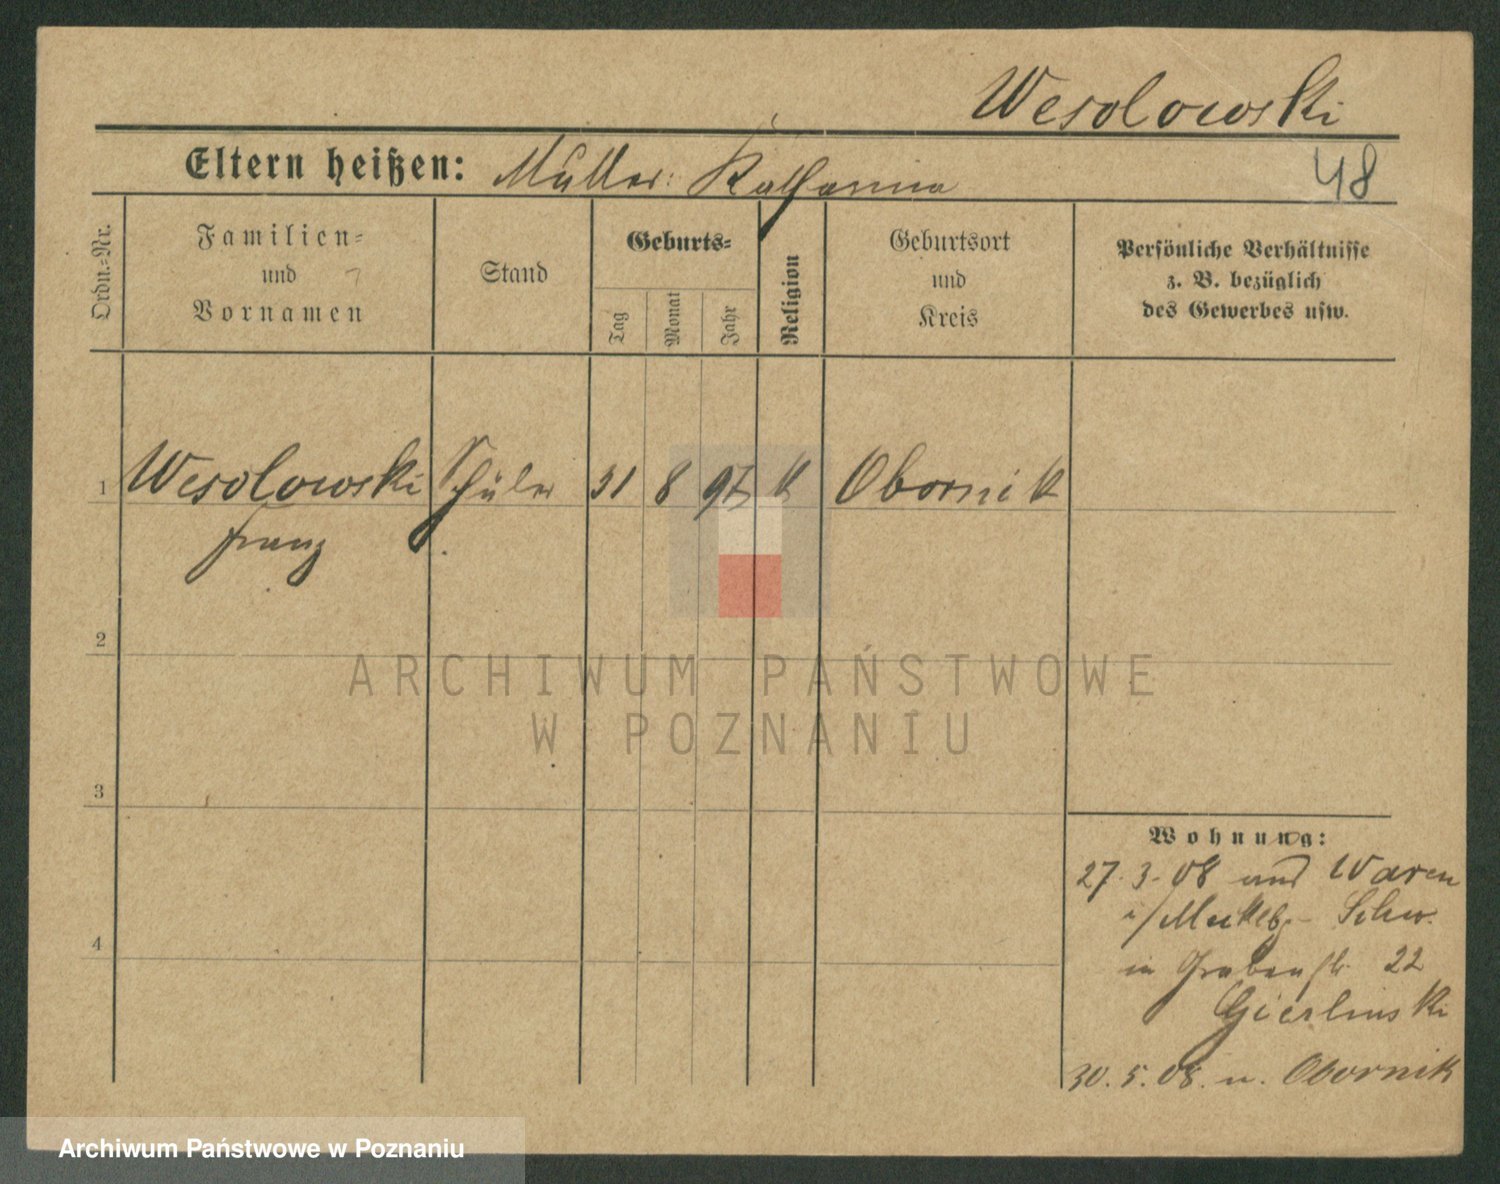 Wesolowski
Eltern heißen: Mutter: Katharina
48
Ordn.-Nr.
Familien-
und
Vornamen
Stand
Geburts-
Tag
Monat
Jahr
Religion
Geburtsort
und
Kreis
Persönliche Verhältnisse
z. B. bezüglich
des Gewerbes usw.
1 Wesolowski Schüler 31 8 97 K Obornik
Franz
2
3
4
Wohnung:
27.3.08 aus Waren
i/Meklbg-Schw.
in Grabenstr 22
Gierlinski
30.5.08. n. Obornik
ARCHIWUM PAŃSTWOWE
W POZNANIU
Archiwum Państwowe w Poznaniu